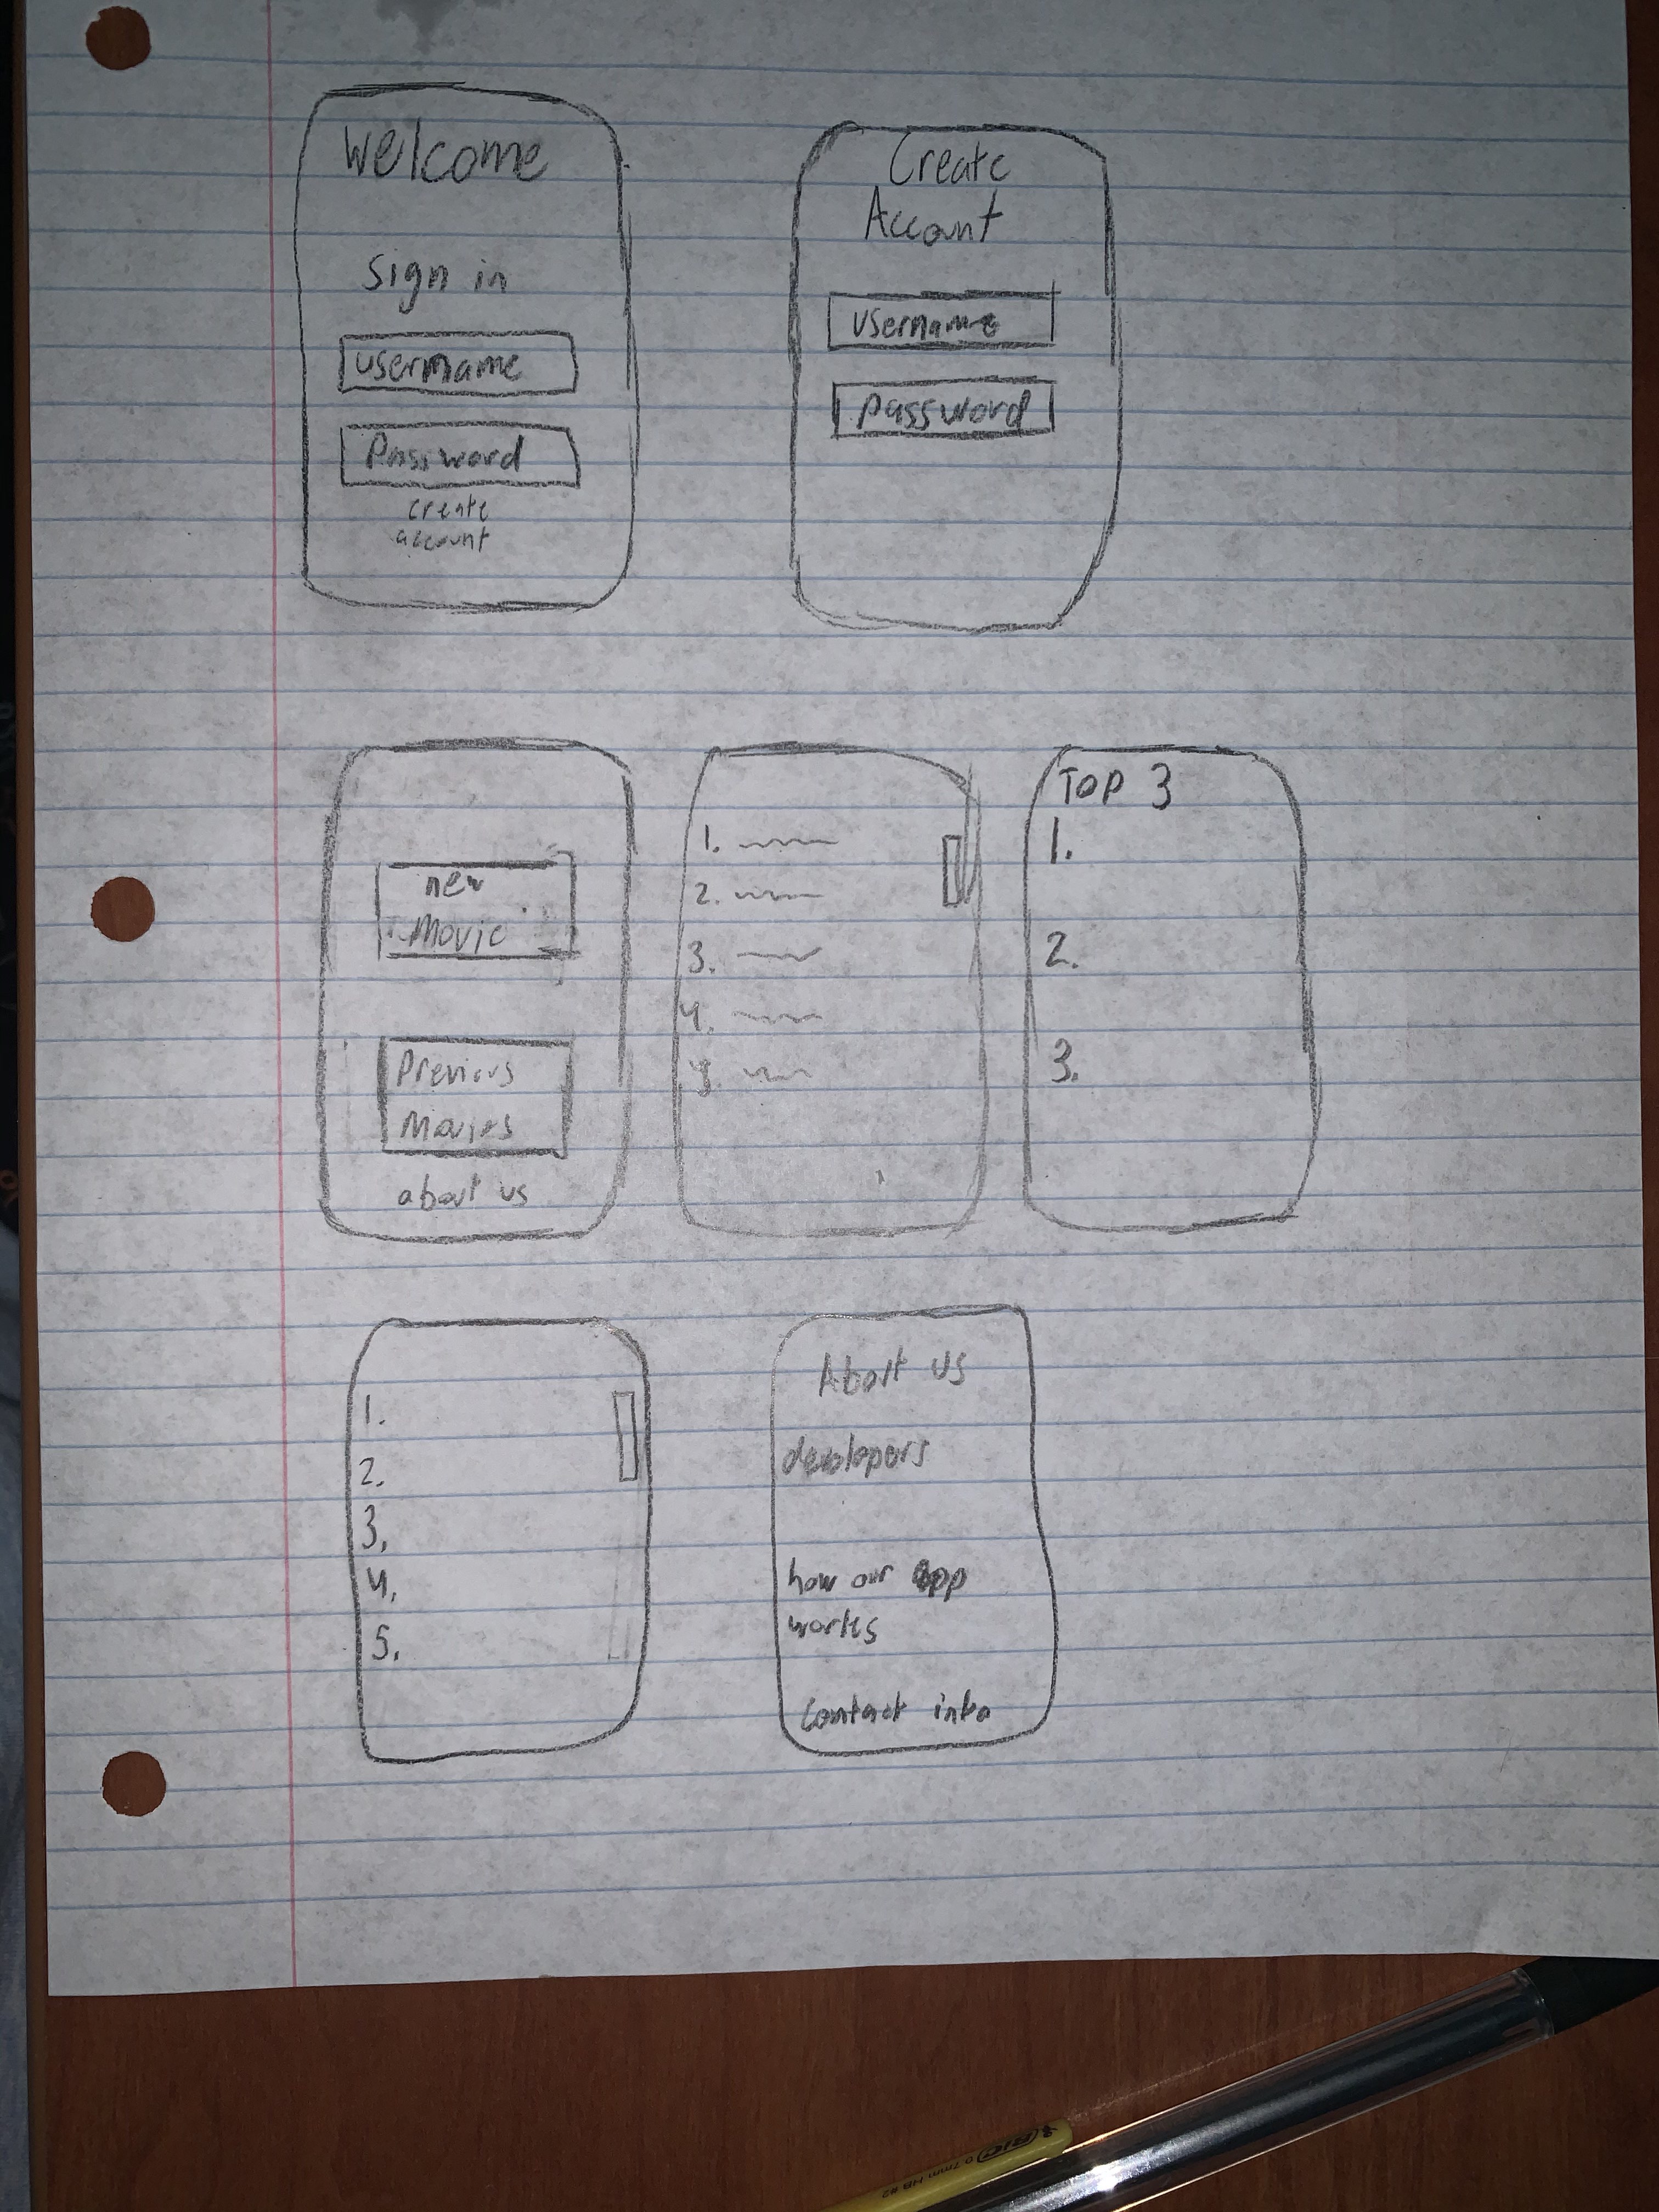 Welcome
Sign in
username
Password
create
account
Create
Account
username
password
new
Movie
Previous
Movies
about us
1.
2.
3.
4.
TOP 3
1.
2.
3.
1.
2.
3.
4.
5.
About us
developers
how our app
works
Contact info
BIC
0.7mm HB #2